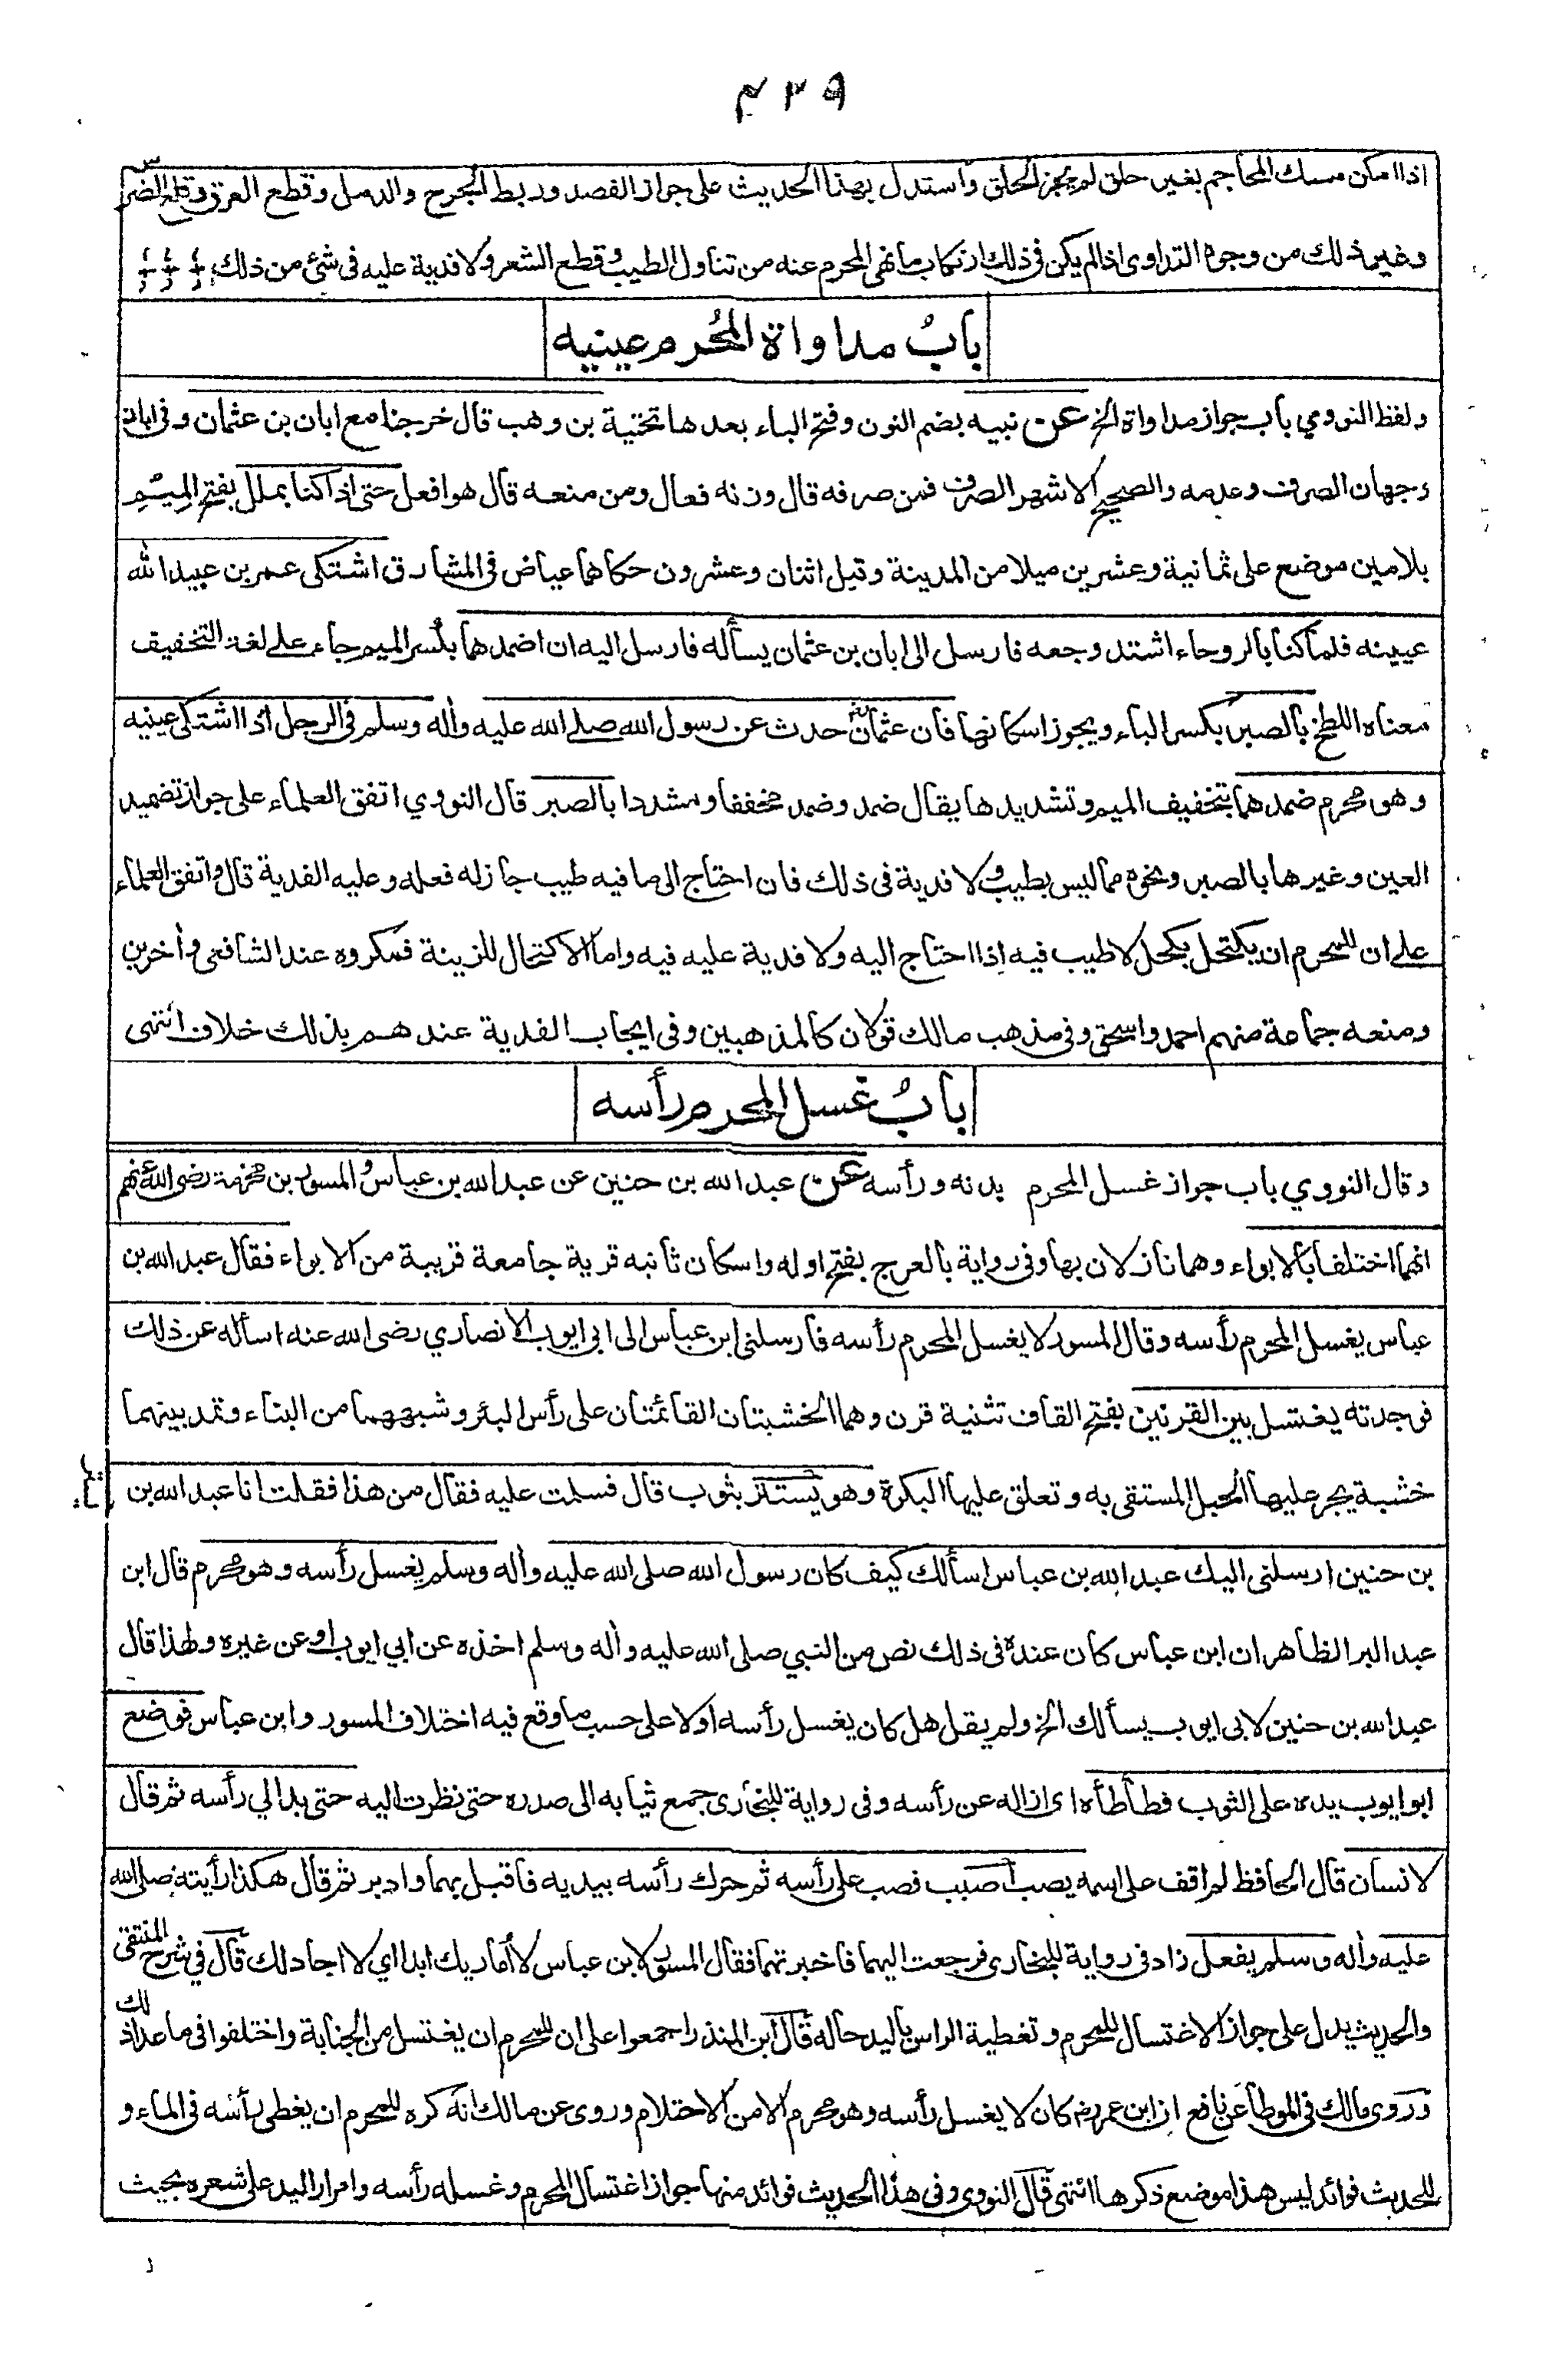 ٤٣٩
اذا امكن مسك المحاجم بغير حلق لم يجز الحلق واستدل بهذا الحديث على جواز الفصد وربط الجرح والدمل وقطع العرق وقلع الضرس
وغير ذلك من وجوه التداوى اذا لم يكن فى ذلك ارتكاب ما نهى المحرم عنه من تناول الطيب وقطع الشعر ولا فدية عليه فى شئ من ذلك
بابُ مداواة المُحرم عينيه
ولفظ النووي باب جواز مداواة الخ عن نبيه بضم النون وفتح الباء بعدها تحتية بن وهب قال خرجنا مع ابان بن عثمان وفى ابان
وجهان الصرف وعدمه والصحيح الاشهر الصرف فمن صرفه قال وزنه فعال ومن منعه قال هو افعل حتى اذا كنا بملل بفتح الميم
بلامين موضع على ثمانية وعشرين ميلا من المدينة وقيل اثنان وعشرون حكاهما عياض فى المشارق اشتكى عمر بن عبيد الله
عيينه فلما كنا بالروحاء اشتد وجعه فارسل الى ابان بن عثمان يسأله فارسل اليه ان اضمدهما بكسر الميم جاء على لغة التخفيف
معناه اللطخ بالصبر بكسر الباء ويجوز اسكانها فان عثمان حدث عن رسول الله صلى الله عليه واله وسلم فى الرجل اذا اشتكى عينيه
وهو محرم ضمدهما بتخفيف الميم وتشديدها يقال ضمد وضمد مخففا ومشددا بالصبر قال النووي اتفق العلماء على جواز تضميد
العين وغيرها بالصبر ونحوه مما ليس بطيب ولا فدية فى ذلك فان احتاج الى ما فيه طيب جاز له فعله وعليه الفدية قال واتفق العلماء
على ان للمحرم ان يكتحل بكحل لا طيب فيه اذا احتاج اليه ولا فدية عليه فيه واما الاكتحال للزينة فمكروه عند الشافعى وأخرين
ومنعه جماعة منهم احمد واسحق وفى مذهب مالك قولان كالمذهبين وفى ايجاب الفدية عندهم بذلك خلاف انتهى
بابُ غسل المحرم رأسه
وقال النووي باب جواز غسل المحرم بدنه ورأسه عن عبد الله بن حنين عن عبد الله بن عباس والمسور بن مخرمة رضى الله عنهم
انهما اختلفا بالابواء وهما نازلان بها وفى رواية بالعرج بفتح اوله واسكان ثانيه قرية جامعة قريبة من الابواء فقال عبد الله بن
عباس يغسل المحرم رأسه وقال المسور لا يغسل المحرم رأسه فارسلنى ابن عباس الى ابى ايوب الانصاري رضى الله عنه اسأله عن ذلك
فوجدته يغتسل بين القرنين بفتح القاف تثنية قرن وهما الخشبتان القائمتان على رأس البئر وشبههما من البناء وتمد بينهما
خشبة يجر عليها الحبل المستقى به وتعلق عليها البكرة وهو يستتر بثوب قال فسلمت عليه فقال من هذا فقلت انا عبد الله بن
بن حنين ارسلنى اليك عبد الله بن عباس اسألك كيف كان رسول الله صلى الله عليه واله وسلم يغسل رأسه وهو محرم قال ابن
عبد البر الظاهر ان ابن عباس كان عنده فى ذلك نص من النبي صلى الله عليه واله وسلم اخذه عن ابي ايوب او عن غيره ولهذا قال
عبد الله بن حنين لابى ايوب يسألك الخ ولم يقل هل كان يغسل رأسه اولا على حسب ما وقع فيه اختلاف المسور وابن عباس فوضع
ابو ايوب يده على الثوب فطأطأه اى ازاله عن رأسه وفى رواية للبخارى جمع ثيابه الى صدره حتى نظرت اليه حتى بدا لي رأسه ثم قال
لانسان قال الحافظ لم اقف على اسمه يصب أصبب فصب على رأسه ثم حرك رأسه بيديه فاقبل بهما وادبر ثم قال هكذا رأيته صلى الله
عليه واله وسلم يفعل زاد فى رواية للبخارى فرجعت اليهما فاخبرتهما فقال المسور لابن عباس لا أماريك ابدا اي لا اجادلك قال في شرح المنتقى
والحديث يدل على جواز الاغتسال للمحرم وتغطية الراس باليد حاله قال ابن المنذر اجمعوا على ان للمحرم ان يغتسل من الجنابة واختلفوا فى ما عدا ذلك
وروى مالك فى الموطأ عن نافع ان ابن عمر رض كان لا يغسل رأسه وهو محرم الا من الاحتلام وروى عن مالك انه كره للمحرم ان يغطى رأسه فى الماء و
للحديث فوائد ليس هذا موضع ذكرها انتهى قال النووى وفى هذا الحديث فوائد منها جواز اغتسال المحرم وغسله رأسه وامرار اليد على شعره بحيث